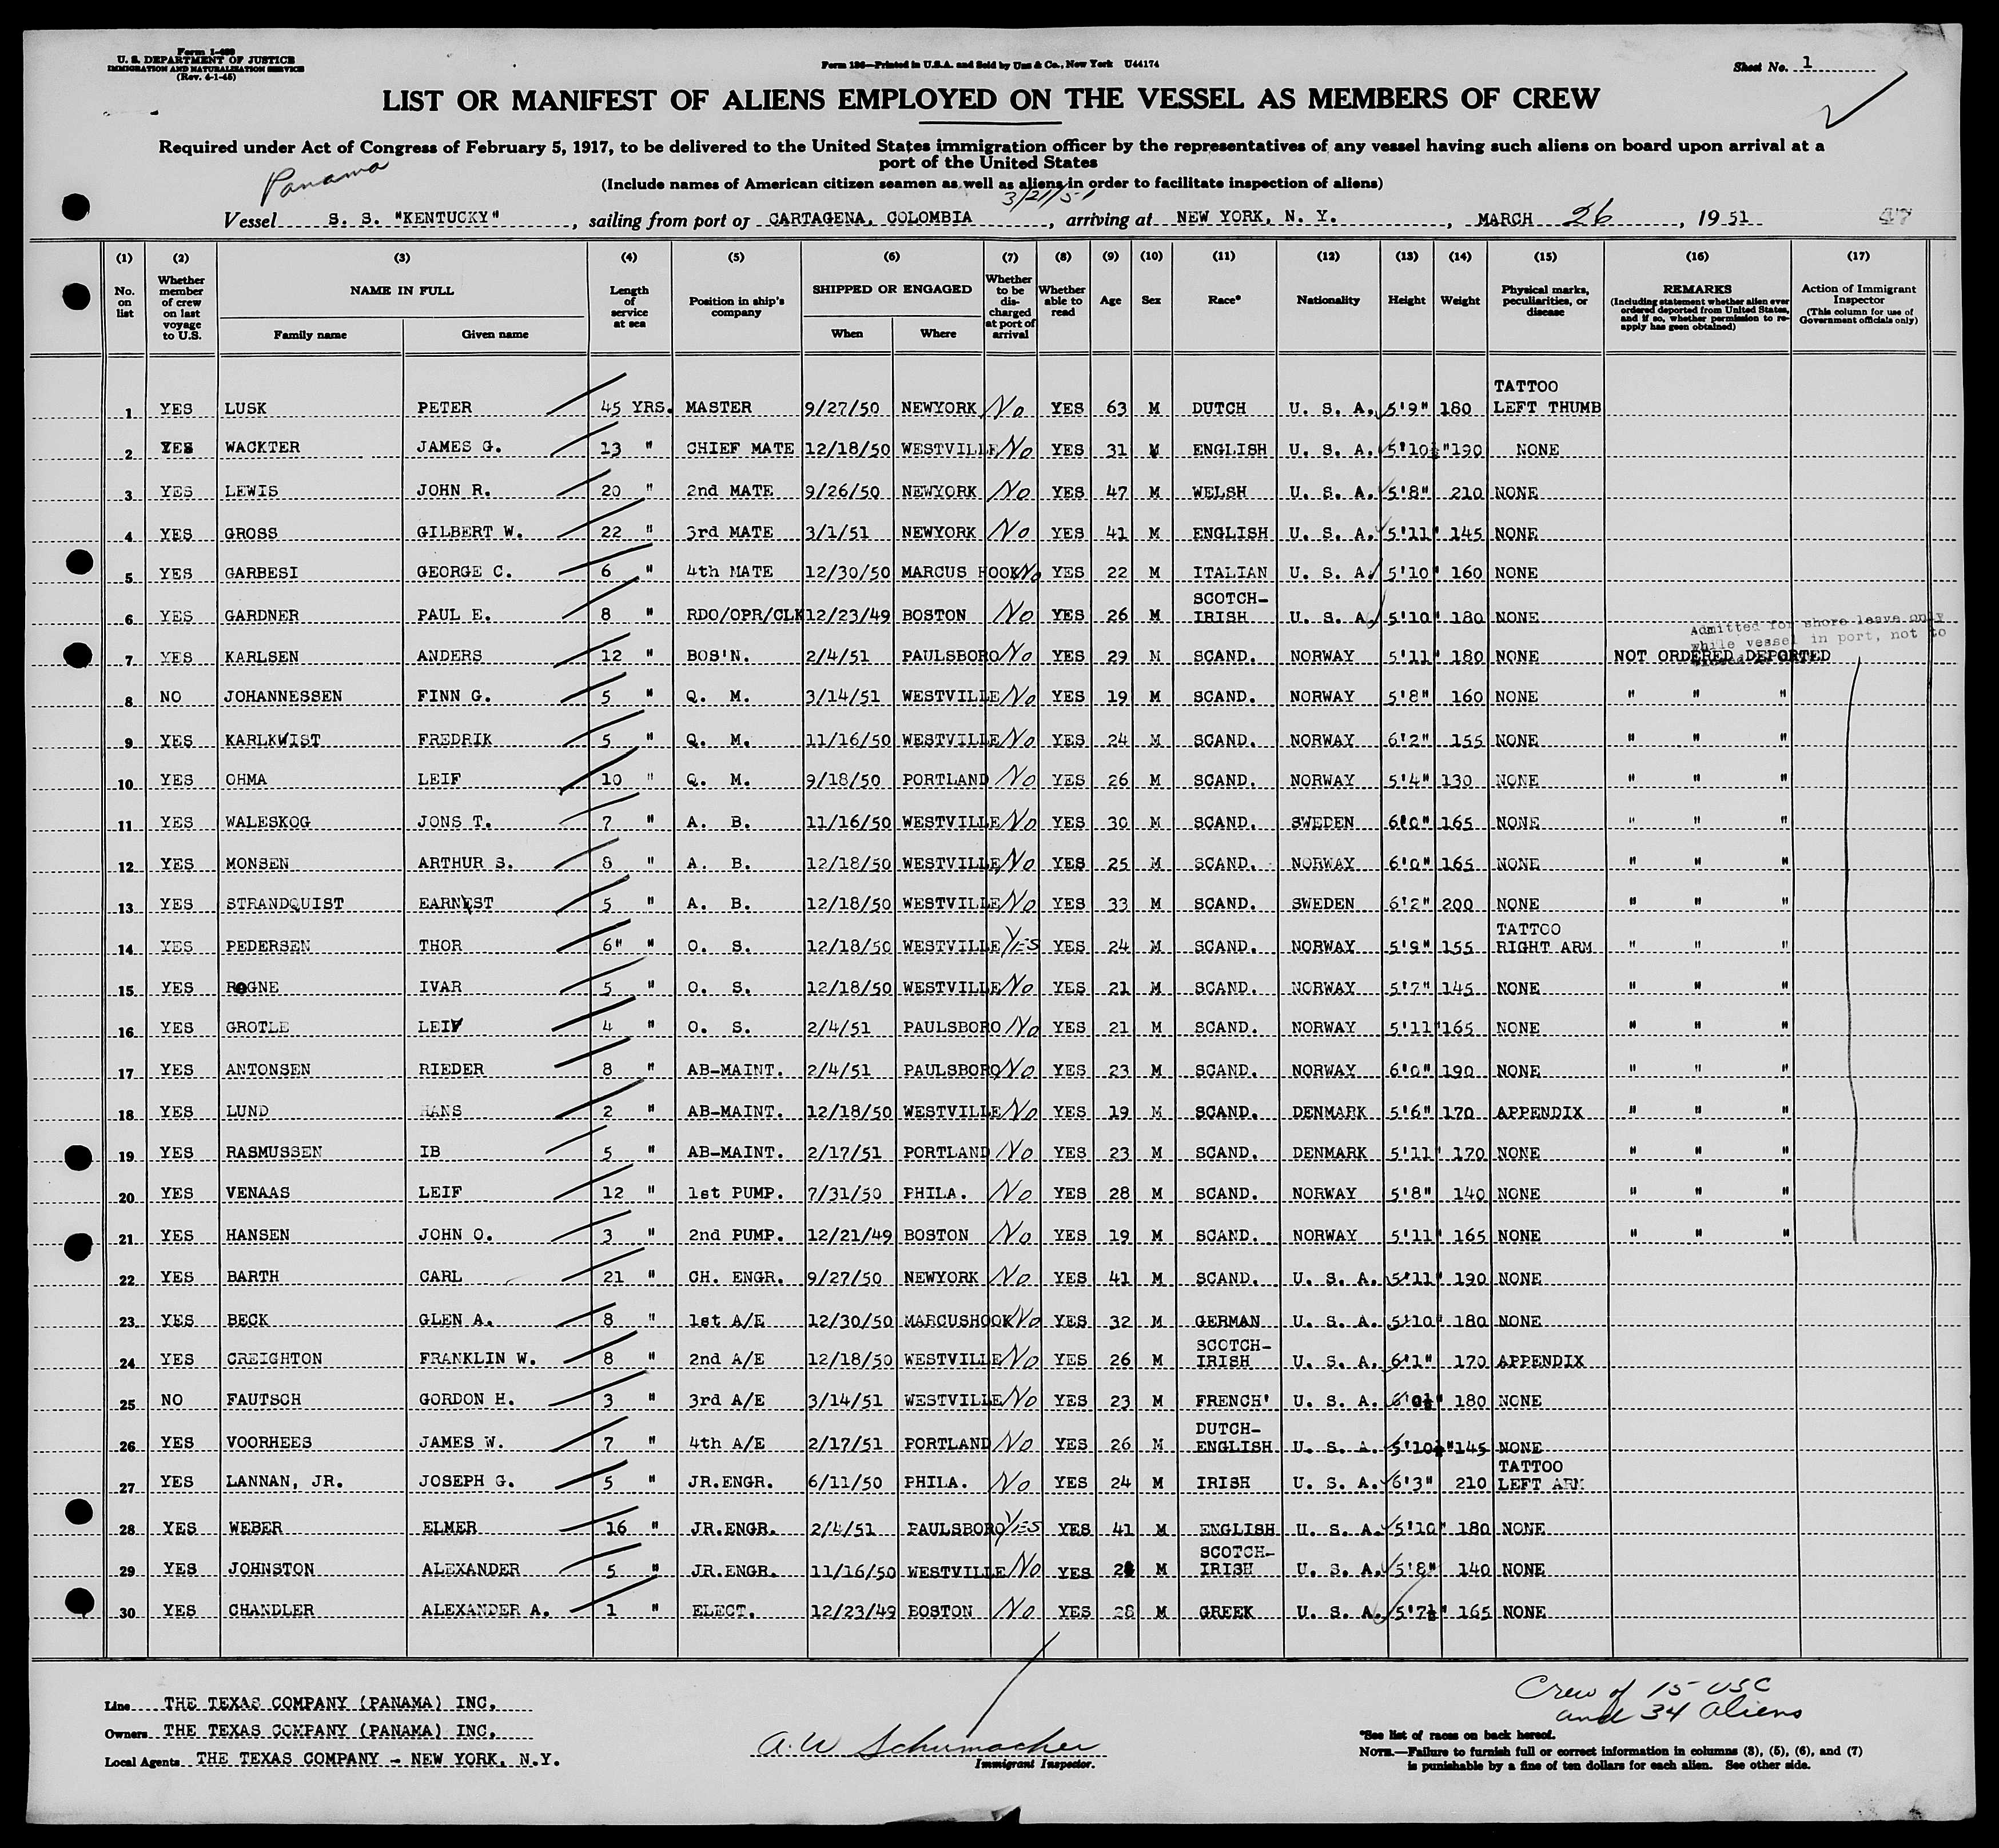 Form I-480
U. S. DEPARTMENT OF JUSTICE
IMMIGRATION AND NATURALIZATION SERVICE
(Rev. 4-1-45)
Form 136—Printed in U.S.A. and Sold by Unz & Co., New York U44174
Sheet No. 1
LIST OR MANIFEST OF ALIENS EMPLOYED ON THE VESSEL AS MEMBERS OF CREW
Required under Act of Congress of February 5, 1917, to be delivered to the United States immigration officer by the representatives of any vessel having such aliens on board upon arrival at a
port of the United States
Panama
(Include names of American citizen seamen as well as aliens in order to facilitate inspection of aliens)
3/21/51
Vessel S. S. "KENTUCKY", sailing from port of CARTAGENA, COLOMBIA, arriving at NEW YORK, N. Y., MARCH 26, 1951 47
(1) No. on list (2) Whether member of crew on last voyage to U.S. (3) NAME IN FULL Family name Given name (4) Length of service at sea (5) Position in ship's company (6) SHIPPED OR ENGAGED When Where (7) Whether to be discharged at port of arrival (8) Whether able to read (9) Age (10) Sex (11) Race* (12) Nationality (13) Height (14) Weight (15) Physical marks, peculiarities, or disease (16) REMARKS (Including statement whether alien ever ordered deported from United States, and if so, whether permission to re-apply has been obtained) (17) Action of Immigrant Inspector (This column for use of Government officials only)
1 YES LUSK PETER 45 YRS. MASTER 9/27/50 NEWYORK No YES 63 M DUTCH U. S. A. 5'9" 180 TATTOO LEFT THUMB
2 YES WACKTER JAMES G. 13 " CHIEF MATE 12/18/50 WESTVILLE No YES 31 M ENGLISH U. S. A. 5'10½" 190 NONE
3 YES LEWIS JOHN R. 20 " 2nd MATE 9/26/50 NEWYORK No YES 47 M WELSH U. S. A. 5'8" 210 NONE
4 YES GROSS GILBERT W. 22 " 3rd MATE 3/1/51 NEWYORK No YES 41 M ENGLISH U. S. A. 5'11" 145 NONE
5 YES GARBESI GEORGE C. 6 " 4th MATE 12/30/50 MARCUS HOOK No YES 22 M ITALIAN U. S. A. 5'10" 160 NONE
6 YES GARDNER PAUL E. 8 " RDO/OPR/CLK 12/23/49 BOSTON No YES 26 M SCOTCH-IRISH U. S. A. 5'10" 180 NONE
Admitted for shore leave only
while vessel in port, not to
7 YES KARLSEN ANDERS 12 " BOS'N. 2/4/51 PAULSBORO No YES 29 M SCAND. NORWAY 5'11" 180 NONE NOT ORDERED DEPORTED
8 NO JOHANNESSEN FINN G. 5 " Q. M. 3/14/51 WESTVILLE No YES 19 M SCAND. NORWAY 5'8" 160 NONE " " "
9 YES KARLKWIST FREDRIK 5 " Q. M. 11/16/50 WESTVILLE No YES 24 M SCAND. NORWAY 6'2" 155 NONE " " "
10 YES OHMA LEIF 10 " Q. M. 9/18/50 PORTLAND No YES 26 M SCAND. NORWAY 5'4" 130 NONE " " "
11 YES WALESKOG JONS T. 7 " A. B. 11/16/50 WESTVILLE No YES 30 M SCAND. SWEDEN 6'0" 165 NONE " " "
12 YES MONSEN ARTHUR S. 8 " A. B. 12/18/50 WESTVILLE No YES 25 M SCAND. NORWAY 6'0" 165 NONE " " "
13 YES STRANDQUIST EARNEST 5 " A. B. 12/18/50 WESTVILLE No YES 33 M SCAND. SWEDEN 6'2" 200 NONE " " "
14 YES PEDERSEN THOR 6" " O. S. 12/18/50 WESTVILLE YES YES 24 M SCAND. NORWAY 5'9" 155 TATTOO RIGHT ARM " " "
15 YES ROGNE IVAR 5 " O. S. 12/18/50 WESTVILLE No YES 21 M SCAND. NORWAY 5'7" 145 NONE " " "
16 YES GROTLE LEIV 4 " O. S. 2/4/51 PAULSBORO No YES 21 M SCAND. NORWAY 5'11" 165 NONE " " "
17 YES ANTONSEN RIEDER 8 " AB-MAINT. 2/4/51 PAULSBORO No YES 23 M SCAND. NORWAY 6'0" 190 NONE " " "
18 YES LUND HANS 2 " AB-MAINT. 12/18/50 WESTVILLE No YES 19 M SCAND. DENMARK 5'6" 170 APPENDIX " " "
19 YES RASMUSSEN IB 5 " AB-MAINT. 2/17/51 PORTLAND No YES 23 M SCAND. DENMARK 5'11" 170 NONE " " "
20 YES VENAAS LEIF 12 " 1st PUMP. 7/31/50 PHILA. No YES 28 M SCAND. NORWAY 5'8" 140 NONE " " "
21 YES HANSEN JOHN O. 3 " 2nd PUMP. 12/21/49 BOSTON No YES 19 M SCAND. NORWAY 5'11" 165 NONE " " "
22 YES BARTH CARL 21 " CH. ENGR. 9/27/50 NEWYORK No YES 41 M SCAND. U. S. A. 5'11" 190 NONE
23 YES BECK GLEN A. 8 " 1st A/E 12/30/50 MARCUSHOOK No YES 32 M GERMAN U. S. A. 5'10" 180 NONE
24 YES CREIGHTON FRANKLIN W. 8 " 2nd A/E 12/18/50 WESTVILLE No YES 26 M SCOTCH-IRISH U. S. A. 6'1" 170 APPENDIX
25 NO FAUTSCH GORDON H. 3 " 3rd A/E 3/14/51 WESTVILLE No YES 23 M FRENCH' U. S. A. 6'0½" 180 NONE
26 YES VOORHEES JAMES W. 7 " 4th A/E 2/17/51 PORTLAND No YES 26 M DUTCH-ENGLISH U. S. A. 5'10½" 145 NONE
27 YES LANNAN, JR. JOSEPH G. 5 " JR.ENGR. 6/11/50 PHILA. No YES 24 M IRISH U. S. A. 6'3" 210 TATTOO LEFT ARM
28 YES WEBER ELMER 16 " JR.ENGR. 2/4/51 PAULSBORO YES YES 41 M ENGLISH U. S. A. 5'10" 180 NONE
29 YES JOHNSTON ALEXANDER 5 " JR.ENGR. 11/16/50 WESTVILLE No YES M SCOTCH-IRISH U. S. A. 5'8" 140 NONE
30 YES CHANDLER ALEXANDER A. 1 " ELECT. 12/23/49 BOSTON No YES 28 M GREEK U. S. A. 5'7½" 165 NONE
Crew of 15 USC
and 34 aliens
Line THE TEXAS COMPANY (PANAMA) INC.
Owners THE TEXAS COMPANY (PANAMA) INC.
Local Agents THE TEXAS COMPANY - NEW YORK, N.Y.
A. W. Schumacher
Immigrant Inspector.
*See list of races on back hereof.
NOTE.—Failure to furnish full or correct information in columns (3), (5), (6), and (7)
is punishable by a fine of ten dollars for each alien. See other side.